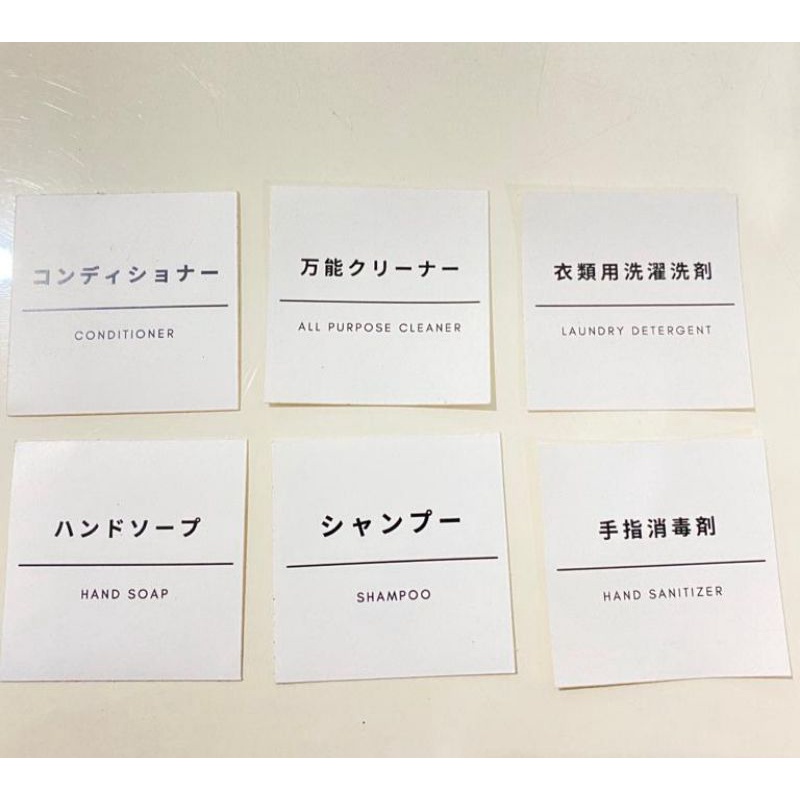 コンディショナー
CONDITIONER
万能クリーナー
ALL PURPOSE CLEANER
衣類用洗濯洗剤
LAUNDRY DETERGENT
ハンドソープ
HAND SOAP
シャンプー
SHAMPOO
手指消毒剤
HAND SANITIZER